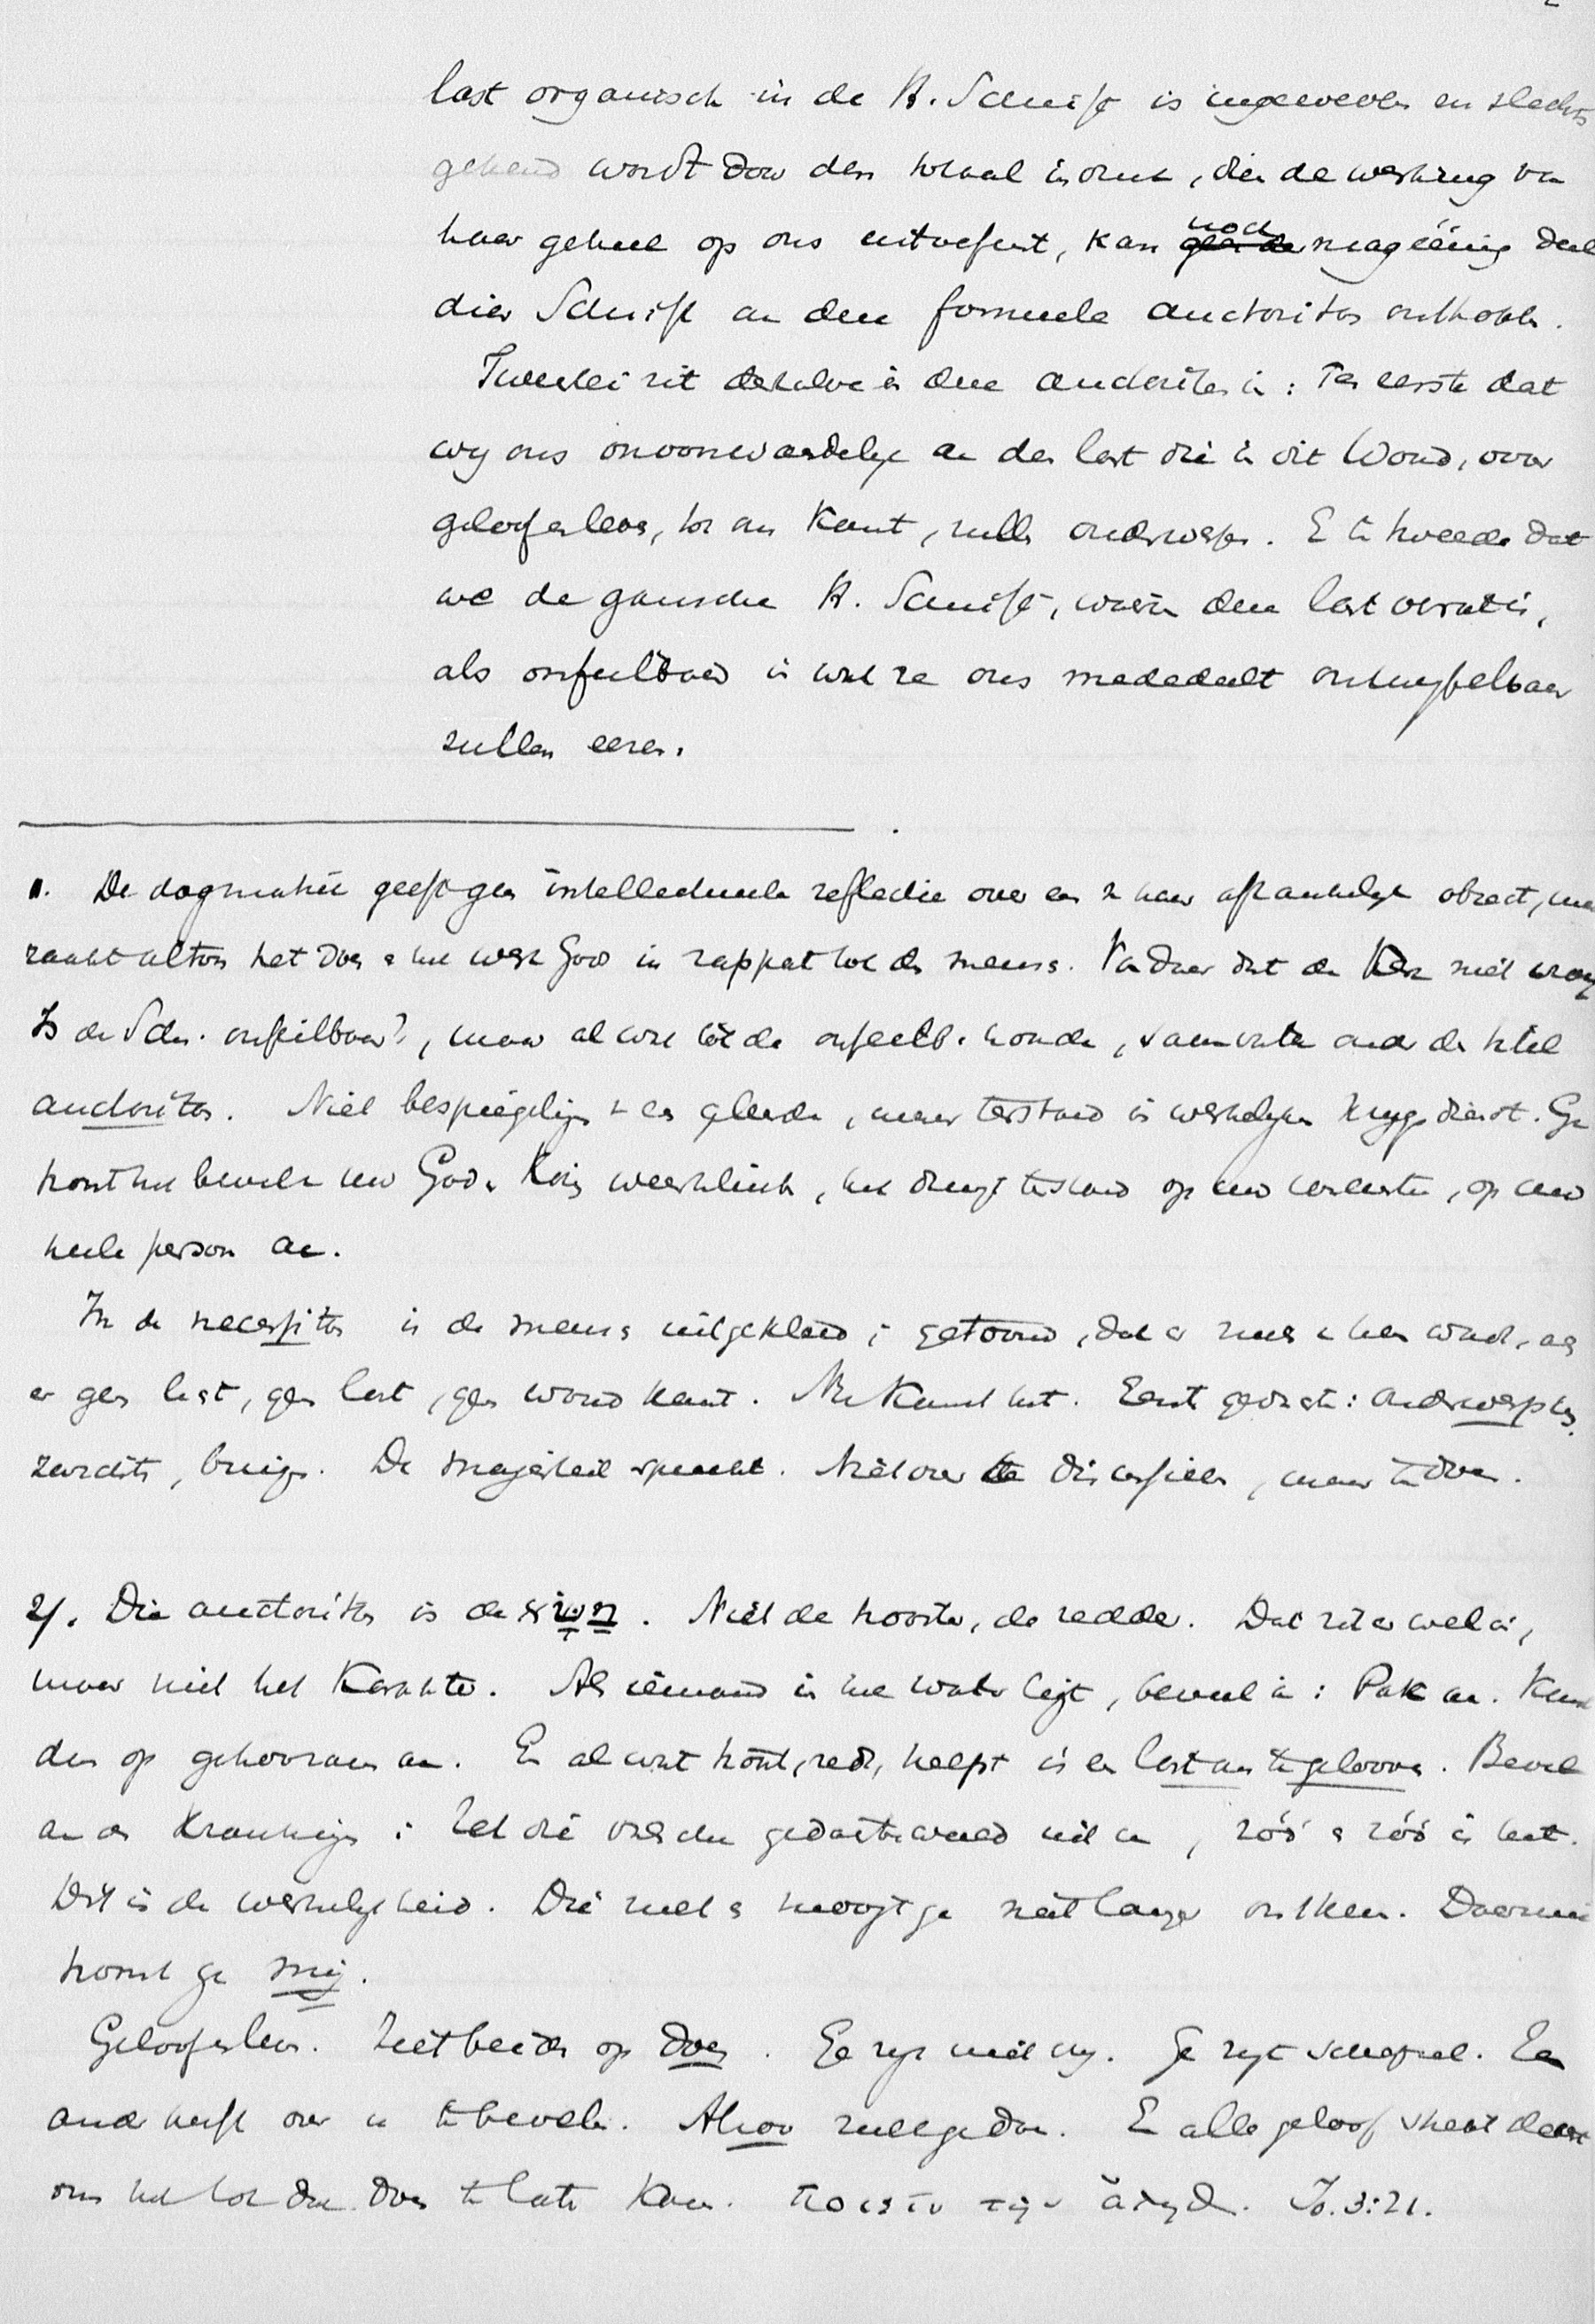 last organisch in de H. Schrift is ingeweven en slechts
gekend wordt door den totaal indruk, dien de werking van
haar geheel op ons uitoefent, kan noch mag éénig deel
dier Schrift aan deze formeele auctoritas onthoudn.
Tweeërlei zit derhalve in deze auctoritas in: Ten eerste dat
wij ons onvoorwaardelijk aan den last die in dit Woord, over
geloof en leven, tot ons komt, zulln onderwerpen. En ten tweede dat
we de gansche H. Schrift, waarin deze last vervat is,
als onfeilbaar in wat ze ons mededeelt ontwijfelbaar
zullen eeren.
1. De dogmatiek geeft geen intellectueele reflectie over een van haar afhankelijk object, maar
raakt altoos het doen en het werk Gods in rapport tot den mensch. Van daar dat de Kerk niet vraagt
Is de Schr. onfeilbaar?, maar al wat tot de onfeilb. hoorde, samenvatte onder den titel
auctoritas. Niet bespiegeling van een geleerde, maar terstond in werkelijken krijgsdienst. Ge
hoort het bevel van uw God en Kon. weerklinken, het dringt terstond op uw conscientie, op uw
heele persoon aan.
In de necessitas is de mensch uitgekleed; getoond, dat er niets van hem wordt, als
er geen last, geen last, geen woord komt. Nu komt het. Eerst gedacht: onderwerping.
zwichten, buigen. De majesteit spreekt. Niet over te discussieeren, maar te doen.
2/. Die auctoritas is de . Niet de trooster, de redder. Dat zit er wel in,
maar niet het karakter. Als iemand in het water ligt, beveel ik: Pak an. Komt
dus op gehoorzamen an. En al wat troost, redt, helpt is een last om te gelooven. Bevel
aan den krankzinnige: Zet die valsche gedachtenwereld uit en, zóó en zóó is het.
Dit is de werkelijkheid. Die moet en moogt ge niet langer ontkennen. Daarin
hoort ge mij.
Geloof en leven. Ziet beide op doen. Ge zijt niet vrij. Ge zijt schepsel. Een
ander heeft over u te bevelen. Alzoo zult ge doen. En alle geloof strekt
om het tot dien doen te laten komen. ποιειν την ἀληθ. Jo. 3:21.